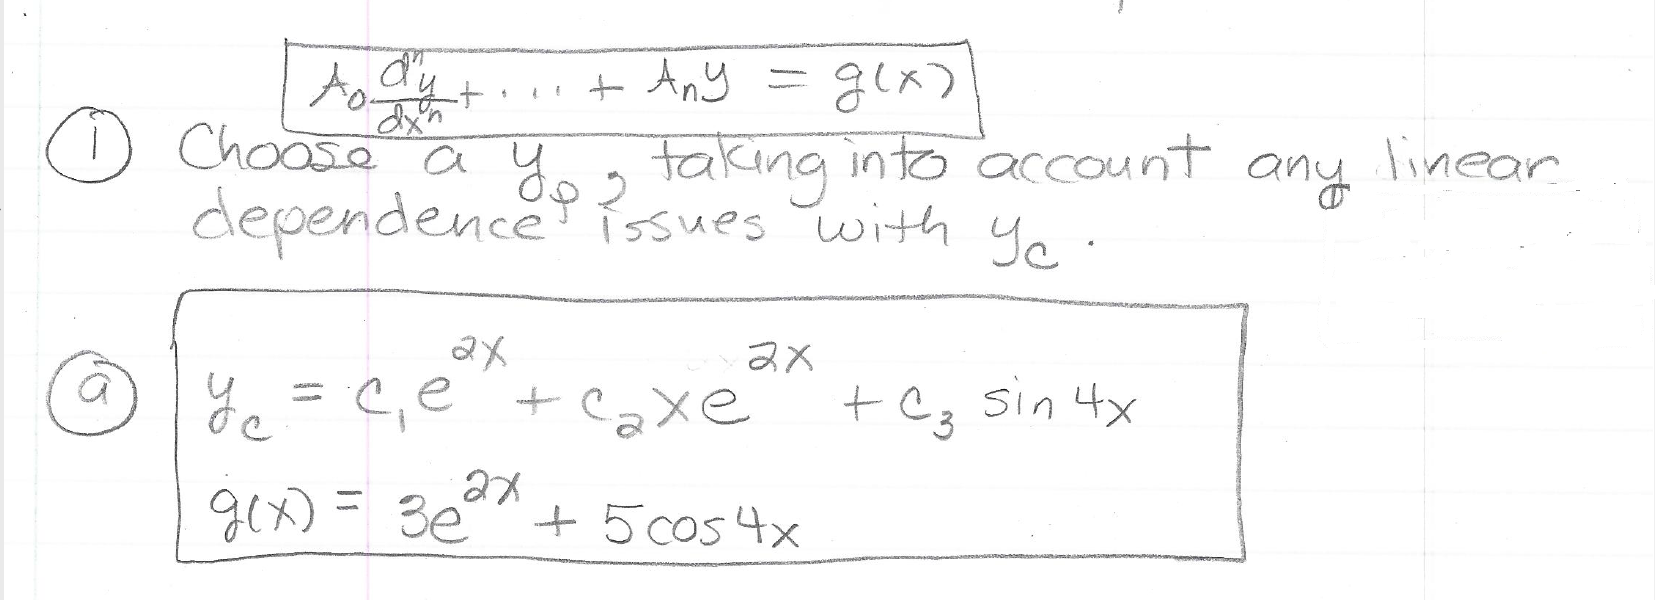 A₀ dⁿy/dxⁿ + .... + Aₙy = g(x)
① Choose a yₚ, taking into account any linear
dependence issues with y_c.
ⓐ y_c = c₁e^{2x} + c₂xe^{2x} + c₃ sin 4x
g(x) = 3e^{2x} + 5cos4x